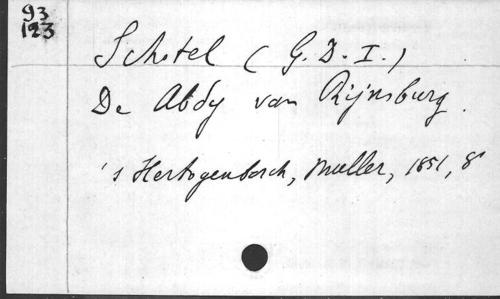 93
123
Schotel (G. D. I.)
De Abdy van Rijnsburg.
's Hertogenbosch, Muller, 1851, 8°